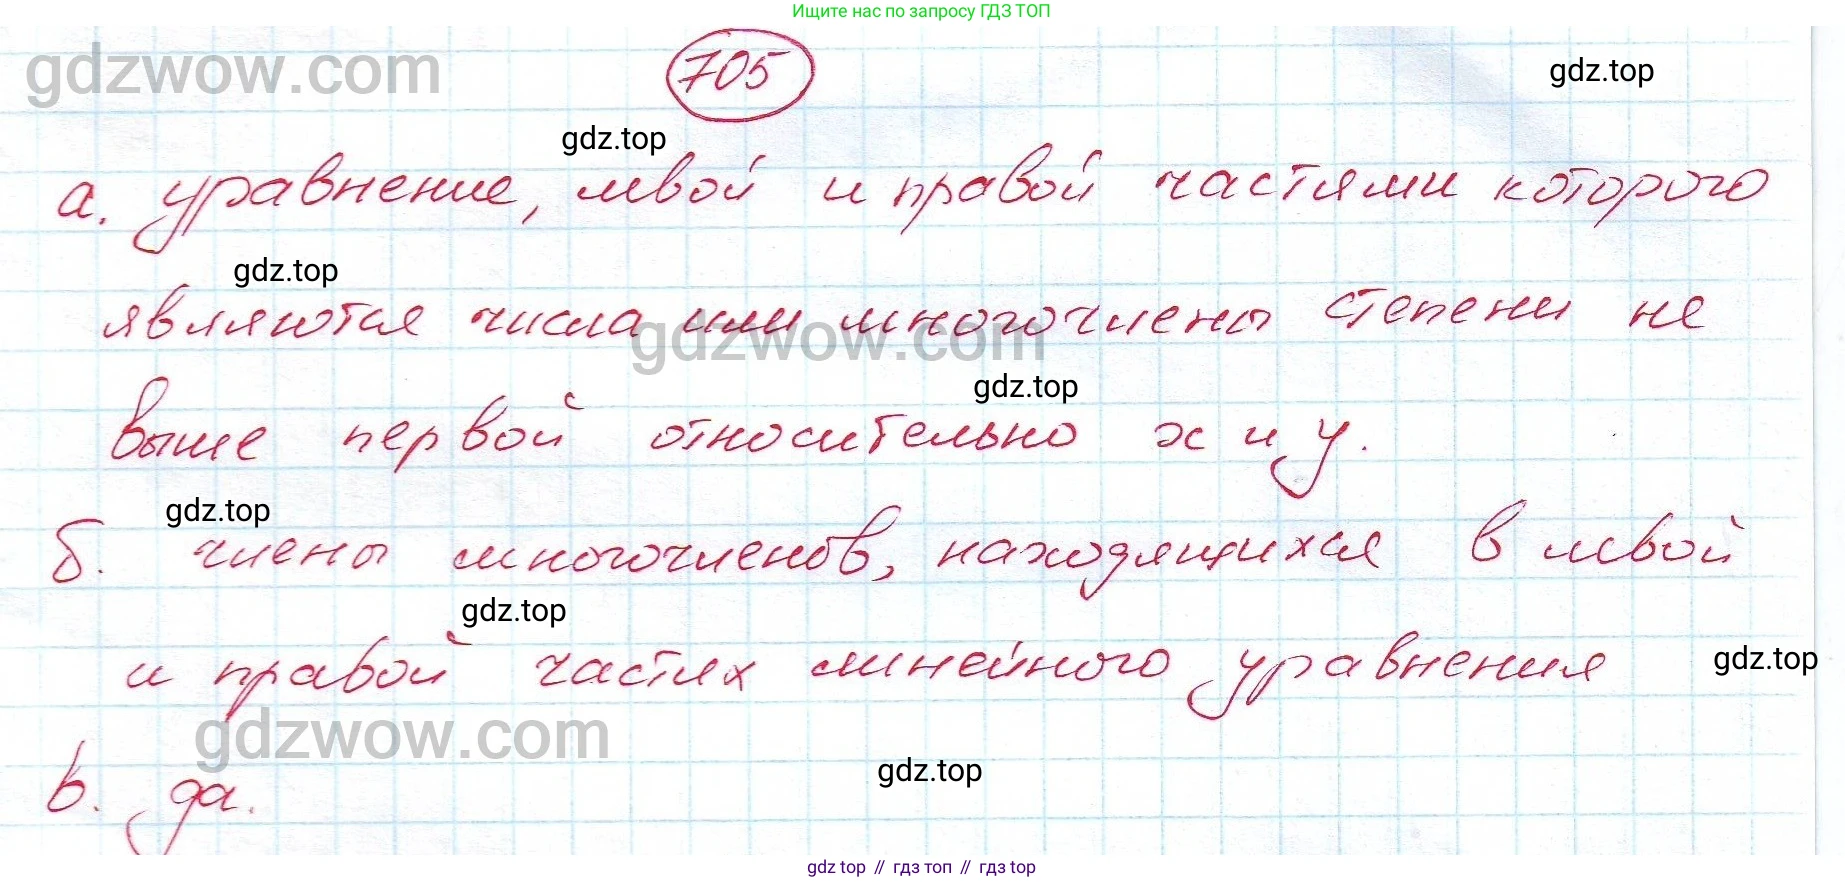 Ищите нас по запросу ГДЗ ТОП
gdzwow.com
705
gdz.top
gdz.top
а. уравнение, левой и правой частями которого
gdz.top
являются числа или многочлены степени не
gdzwow.com
gdz.top
выше первой относительно x и y.
gdz.top
б. члены многочленов, находящихся в левой
gdz.top
и правой частях линейного уравнения
gdz.top
gdzwow.com
gdz.top
в. да.
gdz top // гдз топ // гдз top